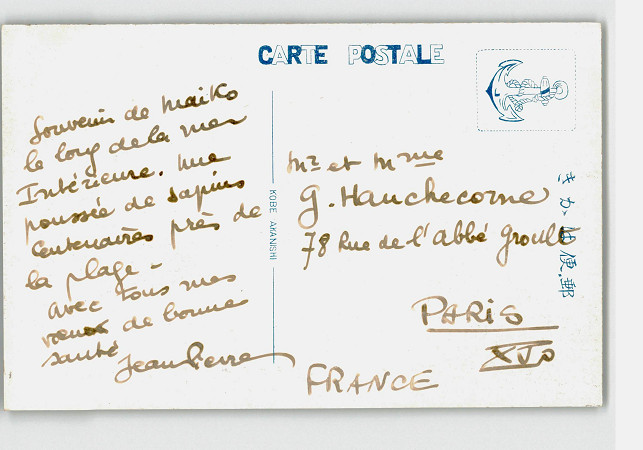 CARTE POSTALE
Souvenir de Maiko
le long de la mer
Intérieure. Une
poussée de sapins
centenaires près de
la plage -
avec tous mes
vœux de bonne
santé
Jean Pierre
KOBE AKANISHI
Mr et Mme
G. Hauchecorne
78 Rue de l'abbé Groult
PARIS
XVo
FRANCE
きがは便郵